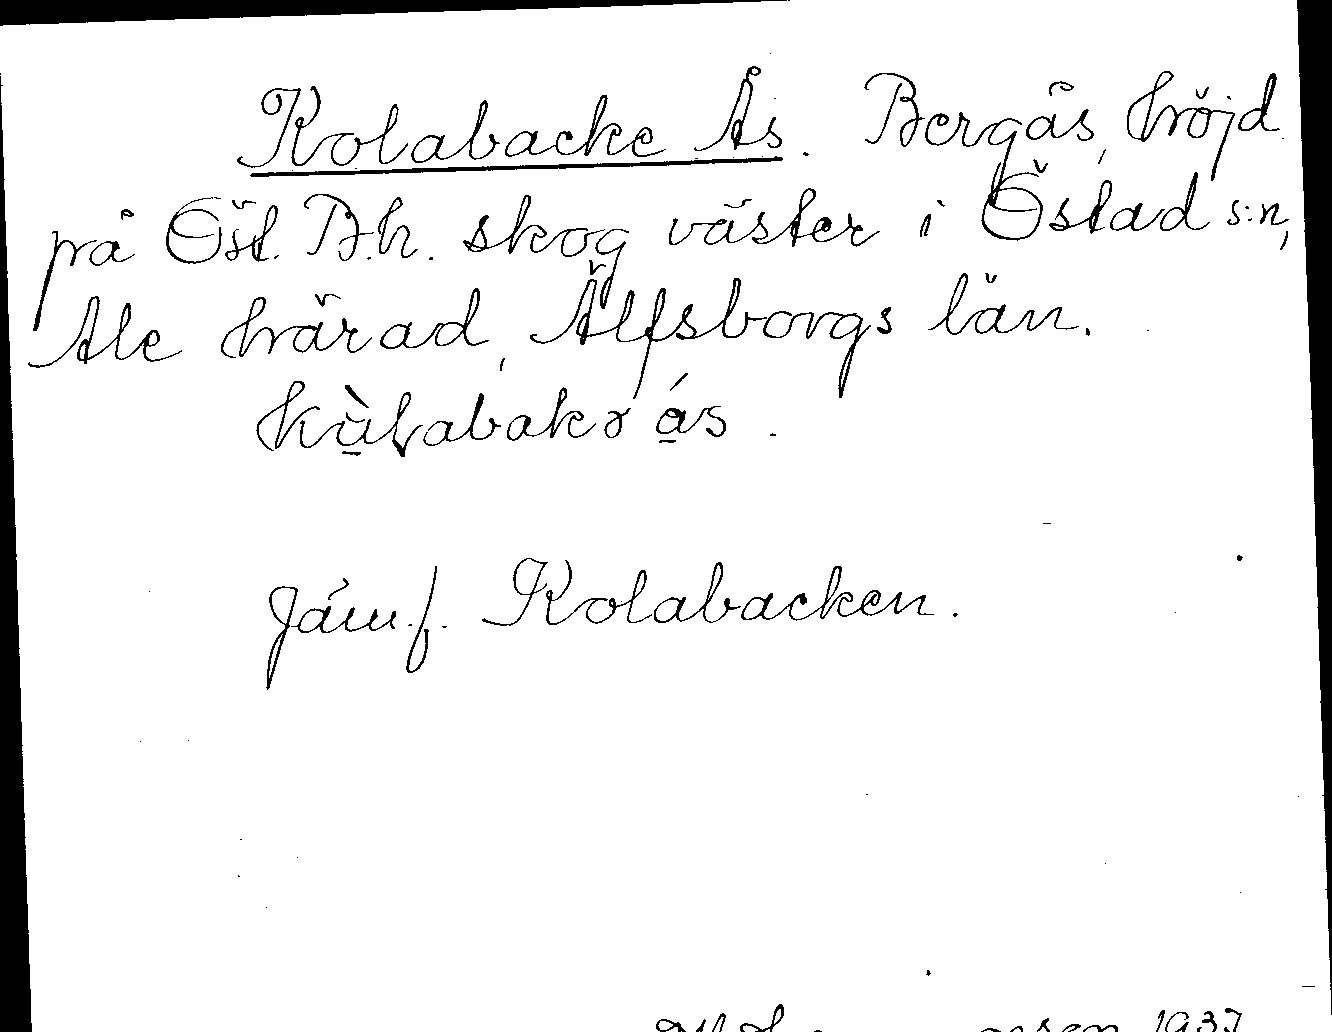 Kolabacke Ås. Bergås, höjd
på Öst. B.h. skog väster i Östad s:n,
Ale härad, Älfsborgs län.
kàlabakə ás.
Jämf. Kolabacken.
1937